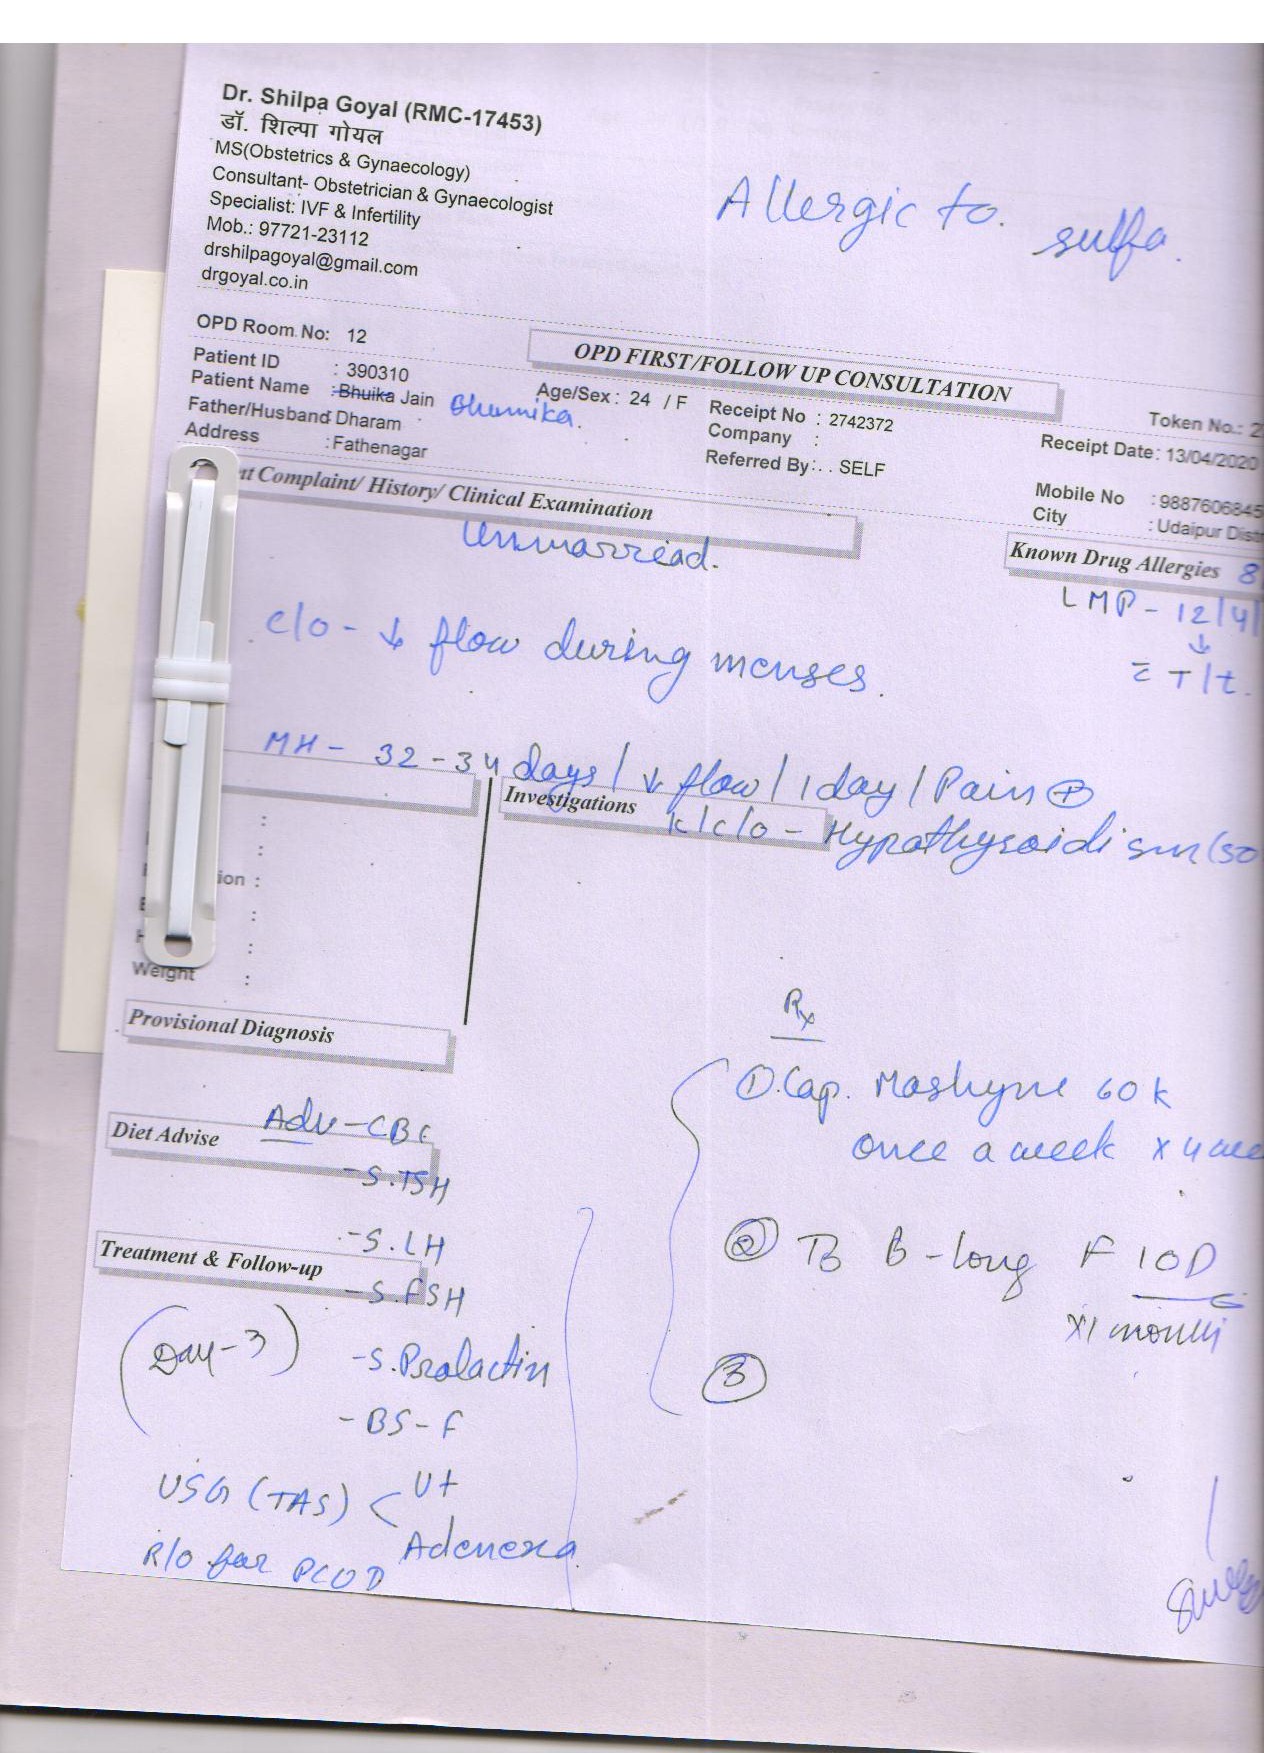 Dr. Shilpa Goyal (RMC-17453)
डॉ. शिल्पा गोयल
MS(Obstetrics & Gynaecology)
Consultant- Obstetrician & Gynaecologist
Specialist: IVF & Infertility
Mob.: 97721-23112
drshilpagoyal@gmail.com
drgoyal.co.in
Allergic to. sulfa.
OPD Room No: 12
OPD FIRST/FOLLOW UP CONSULTATION
Patient ID : 390310
Patient Name : Bhuika Jain Bhumika.
Age/Sex : 24 / F
Father/Husband: Dharam
Address : Fathenagar
Receipt No : 2742372
Company :
Referred By: . . SELF
Token No.: 2
Receipt Date: 13/04/2020
Mobile No : 988760684
City : Udaipur Dist
nt Complaint/ History/ Clinical Examination
Known Drug Allergies
Unmarried.
LMP - 12/4/
↓
T/t.
c/o - ↓ flow during menses.
MH - 32-34 days / ↓ flow / 1 day / Pain ⊕
Investigations
k/c/o - Hypothyroidism (50
ion :
Weight :
Provisional Diagnosis
Rx
① Cap. 60k
once a week x 4
Diet Advise
Adv - CBC
- S. TSH
- S. LH
② B-long F 1OD
x 1 month
Treatment & Follow-up
- S. FSH
(Day-3)
- S. Prolactin
③
- BS - F
USG (TAS) < Ut
Adenexa
R/O for PCOD